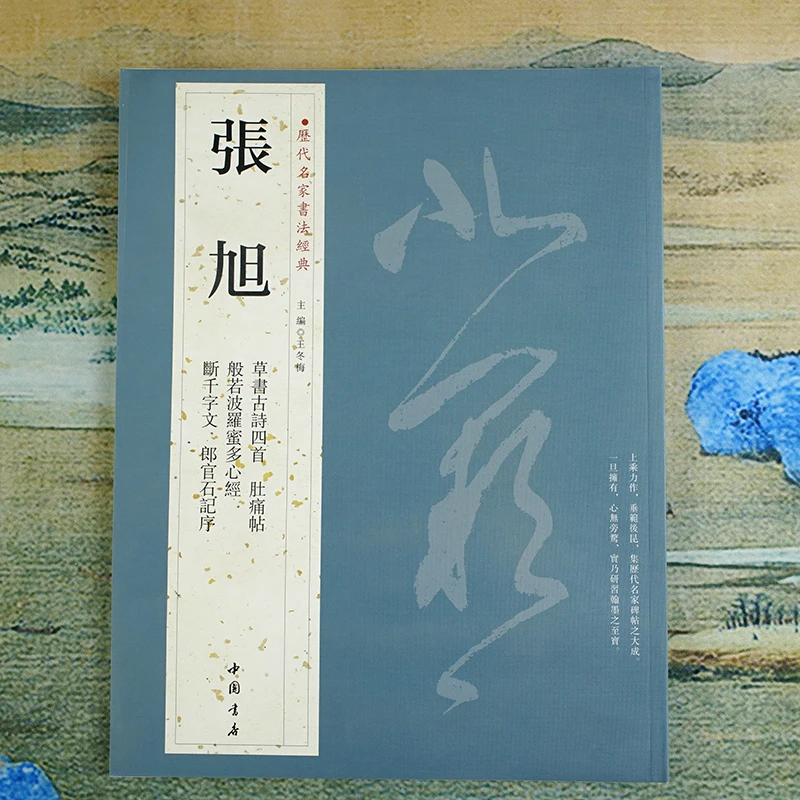 張旭
歷代名家書法經典
主編◎王冬梅
草書古詩四首 肚痛帖
般若波羅蜜多心經
斷千字文 郎官石記序
中國書店
上乘力作，垂範後昆，集歷代名家碑帖之大成。
一旦擁有，心無旁騖，實乃研習翰墨之至寶。